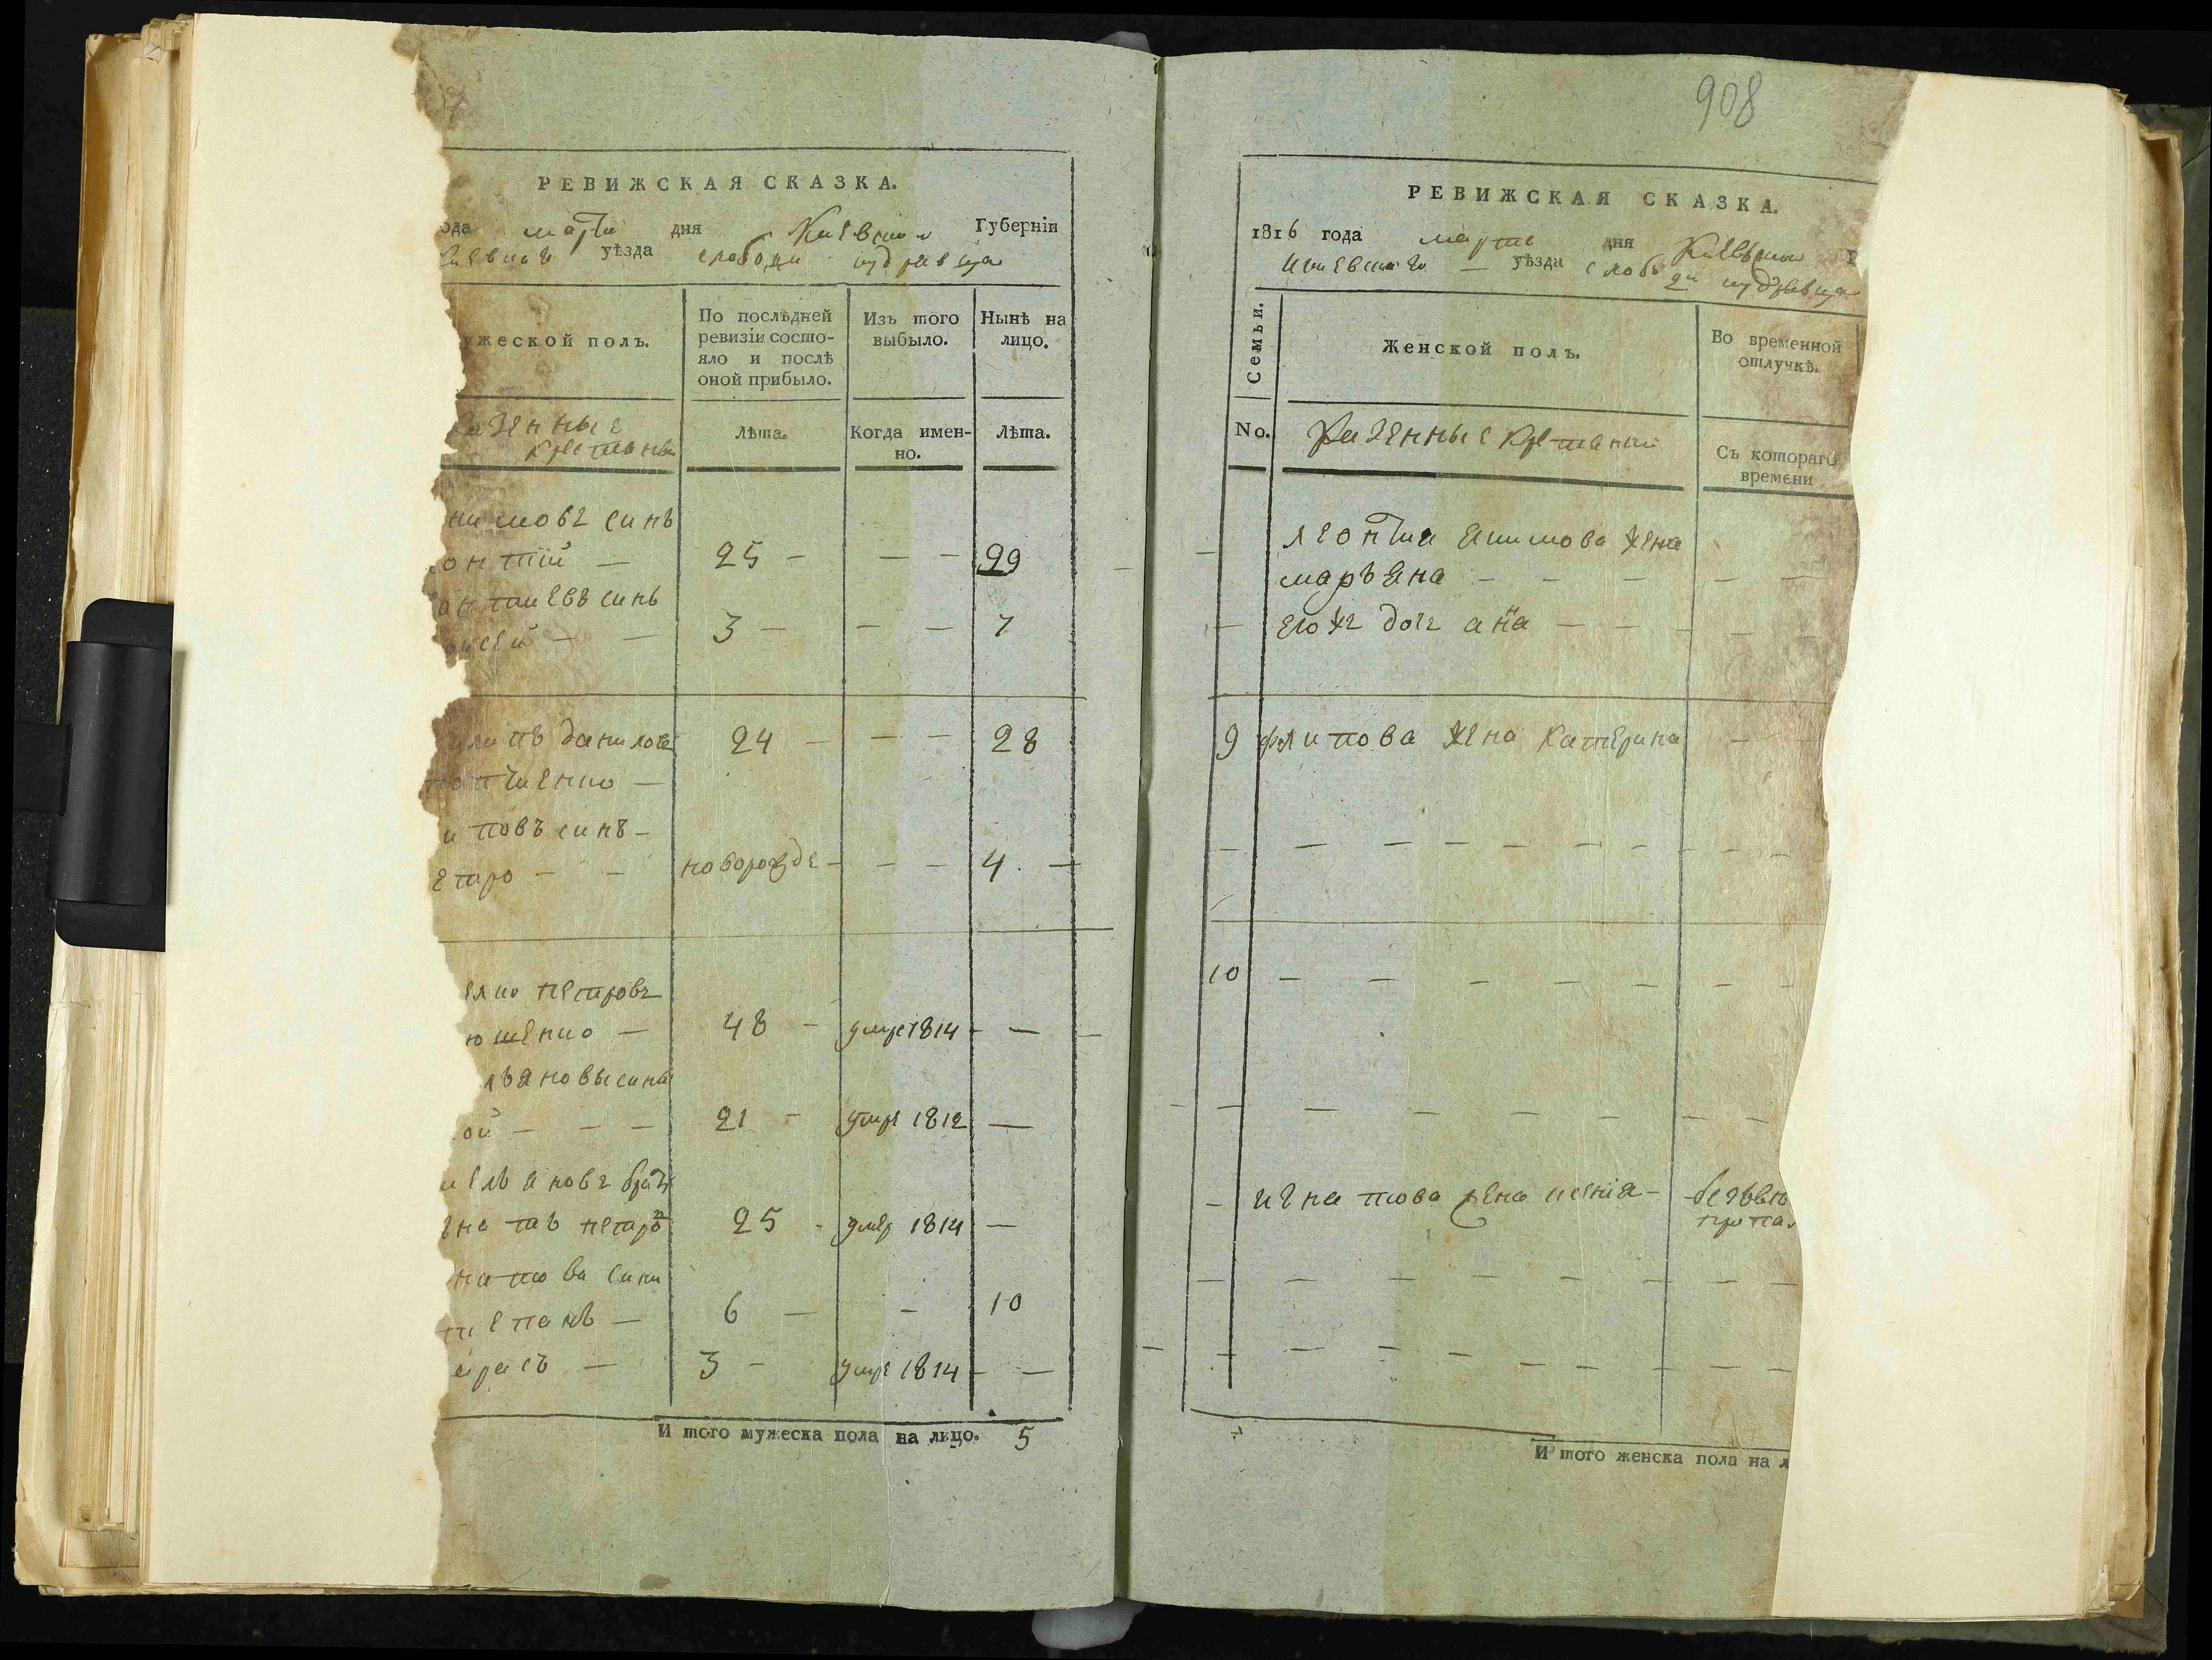 РЕВИЖСКАЯ СКАЗКА.
ода марта дня Киевской Губернїи
уѣзда слободи кудравца
ужеской полъ.
По послѣдней ревизїи состо-
яло и послѣ
оной прибыло.
Изъ того
выбыло.
Нынѣ на
лицо.
казенные
крестьяне
лѣта.
Когда имен-
но.
лѣта.
кимовъ синъ
онтїй — 25 — — — 29
онтиевъ синь
ѯсей — — 3 — — — 7
илипъ даниловъ 24 — — — 28
—
иповъ синъ —
етро — — новорожде — — — 4 —
елко петровъ
ющенко — 48 — умре 1814 — —
льяновы сини
ой — — — 21 — умре 1812 —
мельяновъ братъ
гнатъ петро 25 - умер 1814 —
натова сини
тепанъ — 6 — — 10
арасъ — 3 — умре 1814 — —
И того мужеска пола на лицо. 5
908
РЕВИЖСКАЯ СКАЗКА.
1816 года марта дня Киевской Г
Киевскаго — уѣзда слободи кудравца
Семьи.
Женской полъ.
Во временной
отлучкѣ.
No.
Казенные крестьянки
Съ котораго
времени
леонтия екимова жена
маръяна — — — — —
его же дочь анна — — — — —
9 филипова жена катерина — —
10 — — — — — — —
— игнатова жена ксенїя — безвѣс
пропа
И того женска пола на л